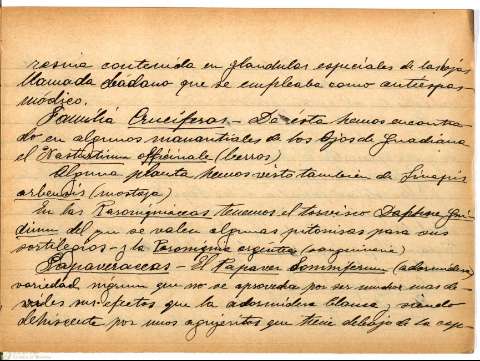 resina contenida en glandulas especiales de las ojas
llamada ládano que se empleaba como antiespas-
módico.
Familiá Crucíferas - De ésta hemos encontra-
do en algunos manantiales de los Ojos de Guadiana
el Nasturtium officinale (berros)
Alguna planta hemos visto tambien de Sinapis
arbensis (mostaza)
En las Paroniquiaceas tenemos el torvisco Daphne Gni-
dium del que se valen algunas pitonisas para sus
sortilegios - y la Paroniquia argentea (sanguinaria)
Papaveraceas - El Papaver Somniferum (adormidera)
variedad nigrum que no se aprovecha por ser muchos mas de-
viles sus efectos que la adormidera blanca, siendo
dehiscente por unos agujeritos que tiene debajo de la